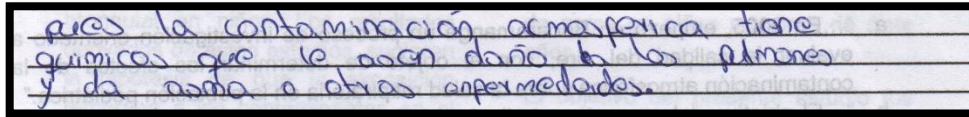 pues la contaminación acmosferica tiene
quimicos que le asen daño a los pulmones
y da asma o otras enfermedades.